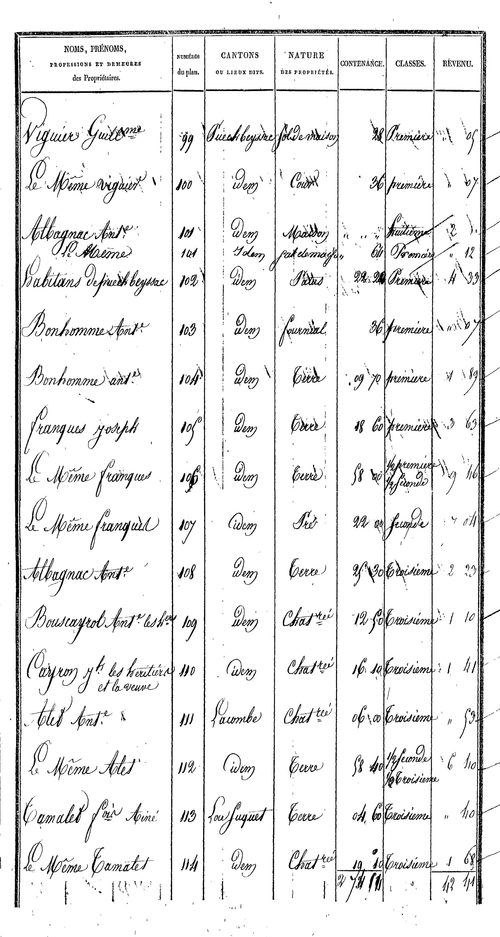 NOMS, PRÉNOMS, PROFESSIONS ET DEMEURES des Propriétaires. NUMÉROS du plan. CANTONS OU LIEUX DITS. NATURE DES PROPRIÉTÉS. CONTENANCE. CLASSES. REVENU.
Viguier Guilme 99 Puechbeysse Sol de maison 28 Première " 05
Le Même viguier 100 idem Cour 36 première " 07
Albagnac Ante 101 idem Maison " " huitième 2 "
Le Même 101 Idem 64 Première " 12
habitans de puechbeysse 102 idem Patus 22 24 Première 4 33
Bonhomme Ante 103 idem fournial 36 première " 07
Bonhomme ante 104 idem Terre 09 70 première 1 89
franques joseph 105 idem Terre 18 60 première 3 63
Le Même franques 106 idem Terre 58 00 ½ première ½ Seconde 9 46
Le Même franques 107 idem Pré 22 00 Seconde 7 04
Albagnac Ante 108 idem Terre 25 30 Troisième 2 33
Bouscayrol Ante les hers 109 idem Chatrée 12 50 Troisième 1 10
Cayron jh les heritiers et la veuve 110 idem Chatrée 16 10 Troisième 1 41
Alet Ante 111 Lacombe Chatrée 06 00 Troisième " 53
Le Même Alet 112 idem Terre 58 40 ½ Seconde ½ Troisième 6 40
Tamalet fois Ainé 113 Lou Suquet Terre 04 60 Troisième " 40
Le Même Tamalet 114 idem Chatrée 19 10 Troisième 1 68